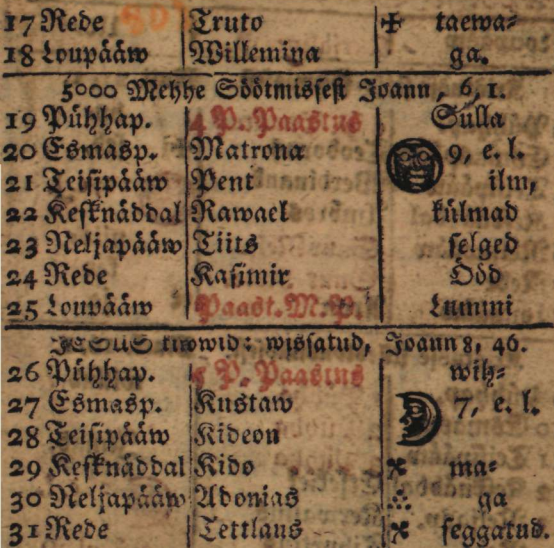 17 Rede Truto ✠ taewa=
18 Loupääw Willemina ga.
5000 Mehhe Söötmissest Joann, 6, 1.
19 Pühhap. 4 P. Paastus Sulla
20 Esmasp. Matrona 9, e. l.
21 Teisipääw Pent ilm,
22 Kesknäddal Rawael külmad
23 Neljapääw Tiits selged
24 Rede Kasimir Ööd
25 Loupääw Paast. M. P. Lummi
JESUS kiwwid: wissatud, Joann 8, 46.
26 Pühhap. 5 P. Paastus wih=
27 Esmasp. Kustaw 7, e. l.
28 Teisipääw Kideon
29 Kesknäddal Kido ma=
30 Neljapääw Adonias ga
31 Rede Tettlaus seggatud.